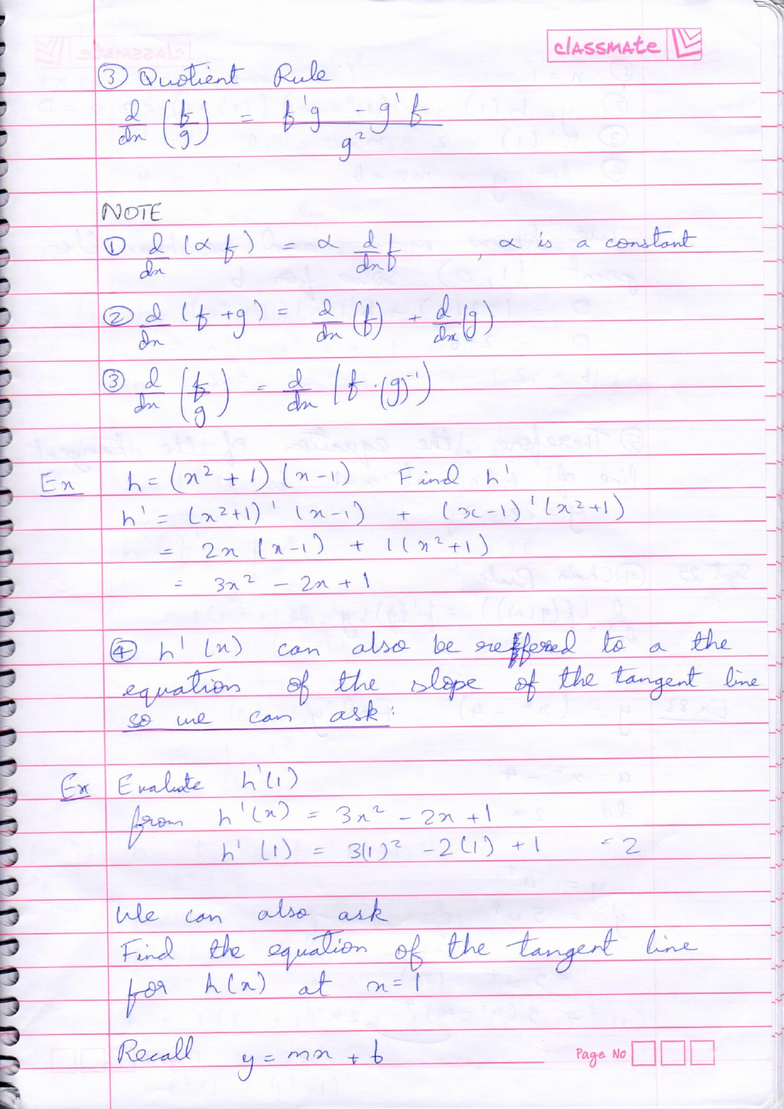 classmate
③ Quotient Rule
d/dx (f/g) = (f'g - g'f)/g²
NOTE
① d/dx (αf) = α d/dx f , α is a constant
② d/dx (f + g) = d/dx (f) + d/dx (g)
③ d/dx (f/g) = d/dx (f · (g)⁻¹)
Ex h = (x² + 1) (x - 1) Find h'
h' = (x²+1)' (x-1) + (x-1)' (x²+1)
= 2x (x-1) + 1(x²+1)
= 3x² - 2x + 1
④ h' (x) can also be reffered to a the
equation of the slope of the tangent line
so we can ask:
Ex Evaluate h'(1)
from h'(x) = 3x² - 2x + 1
h' (1) = 3(1)² - 2(1) + 1 = 2
We can also ask
Find the equation of the tangent line
for h(x) at x = 1
Recall y = mx + b
Page No